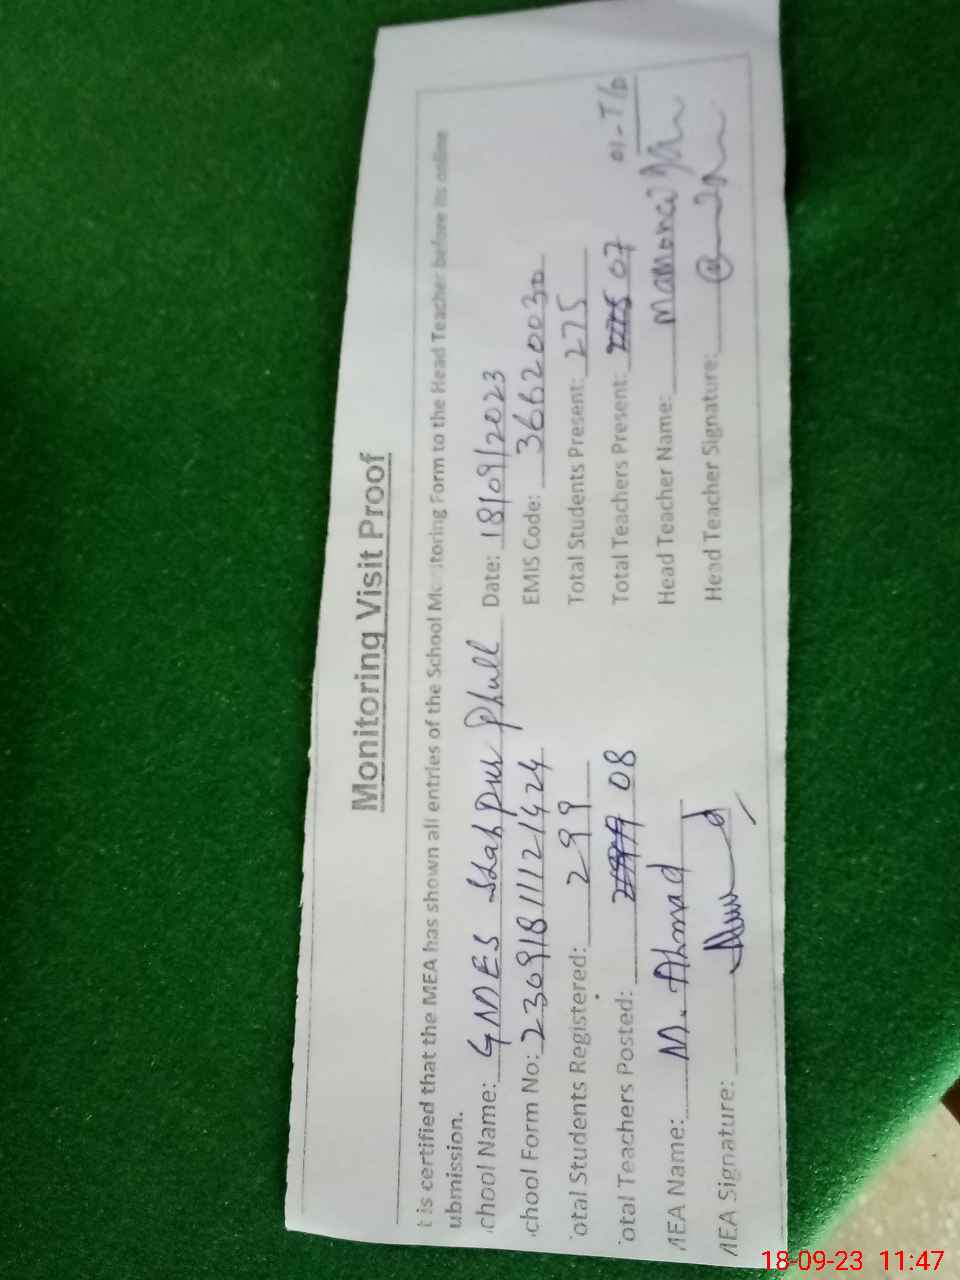 Monitoring Visit Proof
t is certified that the MEA has shown all entries of the School Monitoring Form to the Head Teacher before its online
ubmission.
chool Name: GMES Shahpur Phull Date: 18/09/2023
chool Form No: 23691811121424 EMIS Code: 36620030
otal Students Registered: 299 Total Students Present: 275
otal Teachers Posted: 08 Total Teachers Present: 07 01-T/D
MEA Name: M. Ahmad Head Teacher Name:
MEA Signature: Head Teacher Signature:
18-09-23 11:47